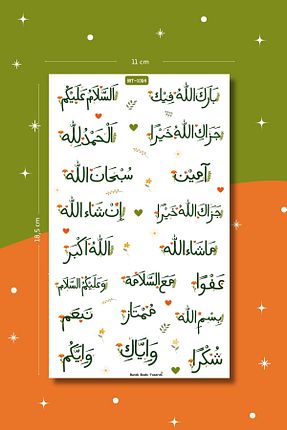 11 cm
18,5 cm
بَارَكَ اللّٰهُ فِيْك اَلسَّلَامُ عَلَيْكُم
جَزَاكَ اللّٰهُ خَيْرًا اَلْحَمْدُ لِلّٰه
آمِيْن سُبْحَانَ اللّٰه
جَزَاكِ اللّٰهُ خَيْرًا إِنْ شَاءَ اللّٰه
مَا شَاءَ اللّٰه اَللّٰهُ أَكْبَر
عَفْوًا مَعَ السَّلَامَة وَعَلَيْكُمُ السَّلَام
بِسْمِ اللّٰه مُمْتَاز نَعَم
شُكْرًا وَإِيَّاكِ وَإِيَّاكُم